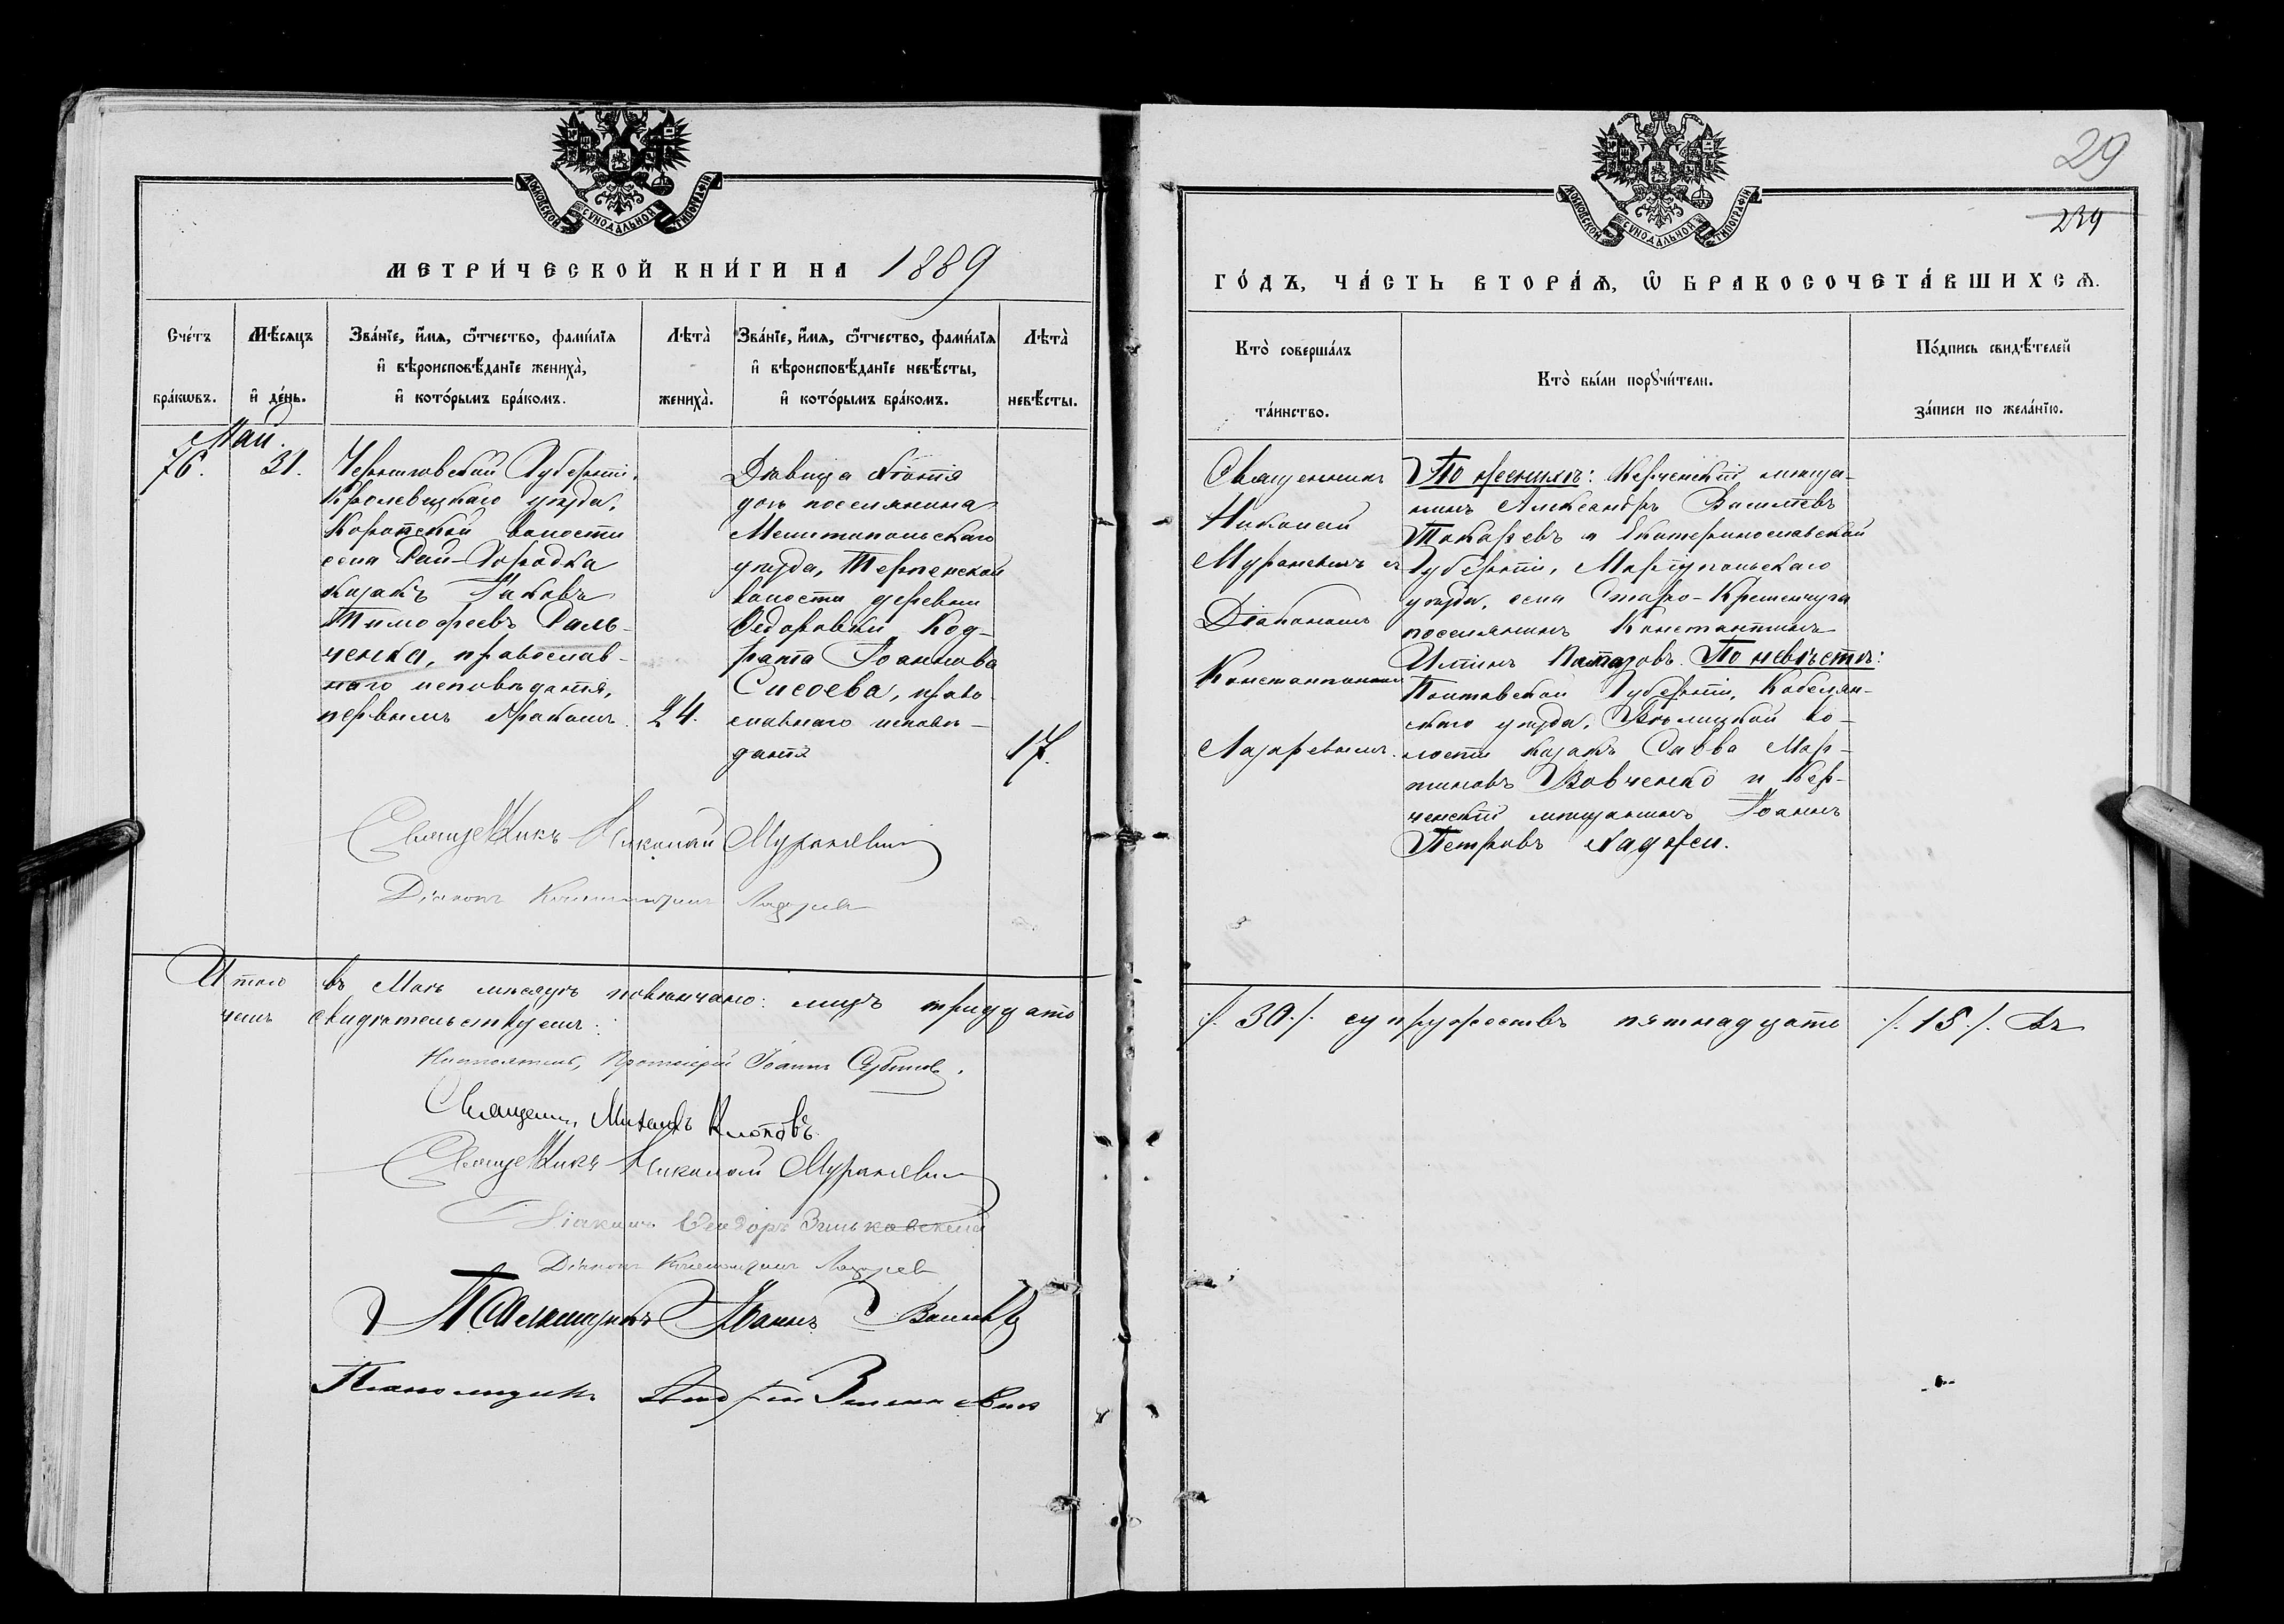 МОСКОВСКОЙ СѴНОДАЛЬНОЙ ТИПОГРАФІИ
МЕТРИ́ЧЕСКОЙ КНИ́ГИ НА 1889
Сче́тъ бра́кωвъ.
Мѣ́сяцъ и҆ де́нь.
Зва́нїе, и҆́мѧ, ѻ҆́тчество, фами́лїѧ
и҆ вѣроисповѣ́данїе женихà,
и҆ кото́рымъ бра́комъ.
Лѣтà
женихà.
Зва́нїе, и҆́мѧ, ѻ҆́тчество, фами́лїѧ
и҆ вѣроисповѣ́данїе невѣ́сты,
и҆ кото́рымъ бра́комъ.
Лѣтà
невѣ́сты.
Май.
76.
31.
Черниговской Губерніи,
Кролевецкаго уѣзда,
Коропской волости
села Рай-Городка
казакъ Іаковъ
Тимофеевъ Саль-
ченко, православ-
наго исповѣданія,
первымъ бракомъ.
24.
Дѣвица
дочь поселянина
Мелитопольскаго
уѣзда, Терпенской
волости деревни
Федоровки Код-
рата Іоаннова
Сисоева, право-
славнаго исповѣ-
данія
17.
Священникъ Николай Мураневичъ
Діаконъ Константинъ Лазарев
Итого въ Маѣ мѣсяцѣ повѣнчано: лицъ тридцать
чемъ свидѣтельствуемъ:
Настоятель, Протоіерей Іоаннъ
Священн. Михаилъ
Священникъ Николай Мураневичъ
Діаконъ Ѳеодоръ Зиньковскій
Діаконъ Константинъ Лазарев
Псаломщикъ Іоаннъ
Псаломщикъ Андрей
МОСКОВСКОЙ СѴНОДАЛЬНОЙ ТИПОГРАФІИ
29
239
ГО́ДЪ, ЧА́СТЬ ВТОРА́Ѧ, Ѽ БРАКОСОЧЕТА́ВШИХСѦ.
Кто̀ соверша́лъ
та́инство.
Кто̀ бы́ли порꙋчи́тели.
По́дпись свидѣ́телей
за́писи по жела́нїю.
Священникъ
Николай
Мураневичъ съ
Діакономъ
Константиномъ
Лазаревымъ.
По женихѣ: Керченскій мѣща-
нинъ Александръ Васильевъ
Токаревъ и Екатеринославской
Губерніи, Маріупольскаго
уѣзда, села Старо-Кременчуга
поселянинъ Константинъ
Ильинъ По невѣстѣ:
Полтавской Губерніи, Кобеляк-
скаго уѣзда, Бѣлицкой во-
лости казакъ Савва Мар-
тиновъ Вовченко и Кер-
ченскій мѣщанинъ Іоаннъ
Петровъ
/. 30 ./. супружествъ пятнадцать ./. 15 ./. Въ